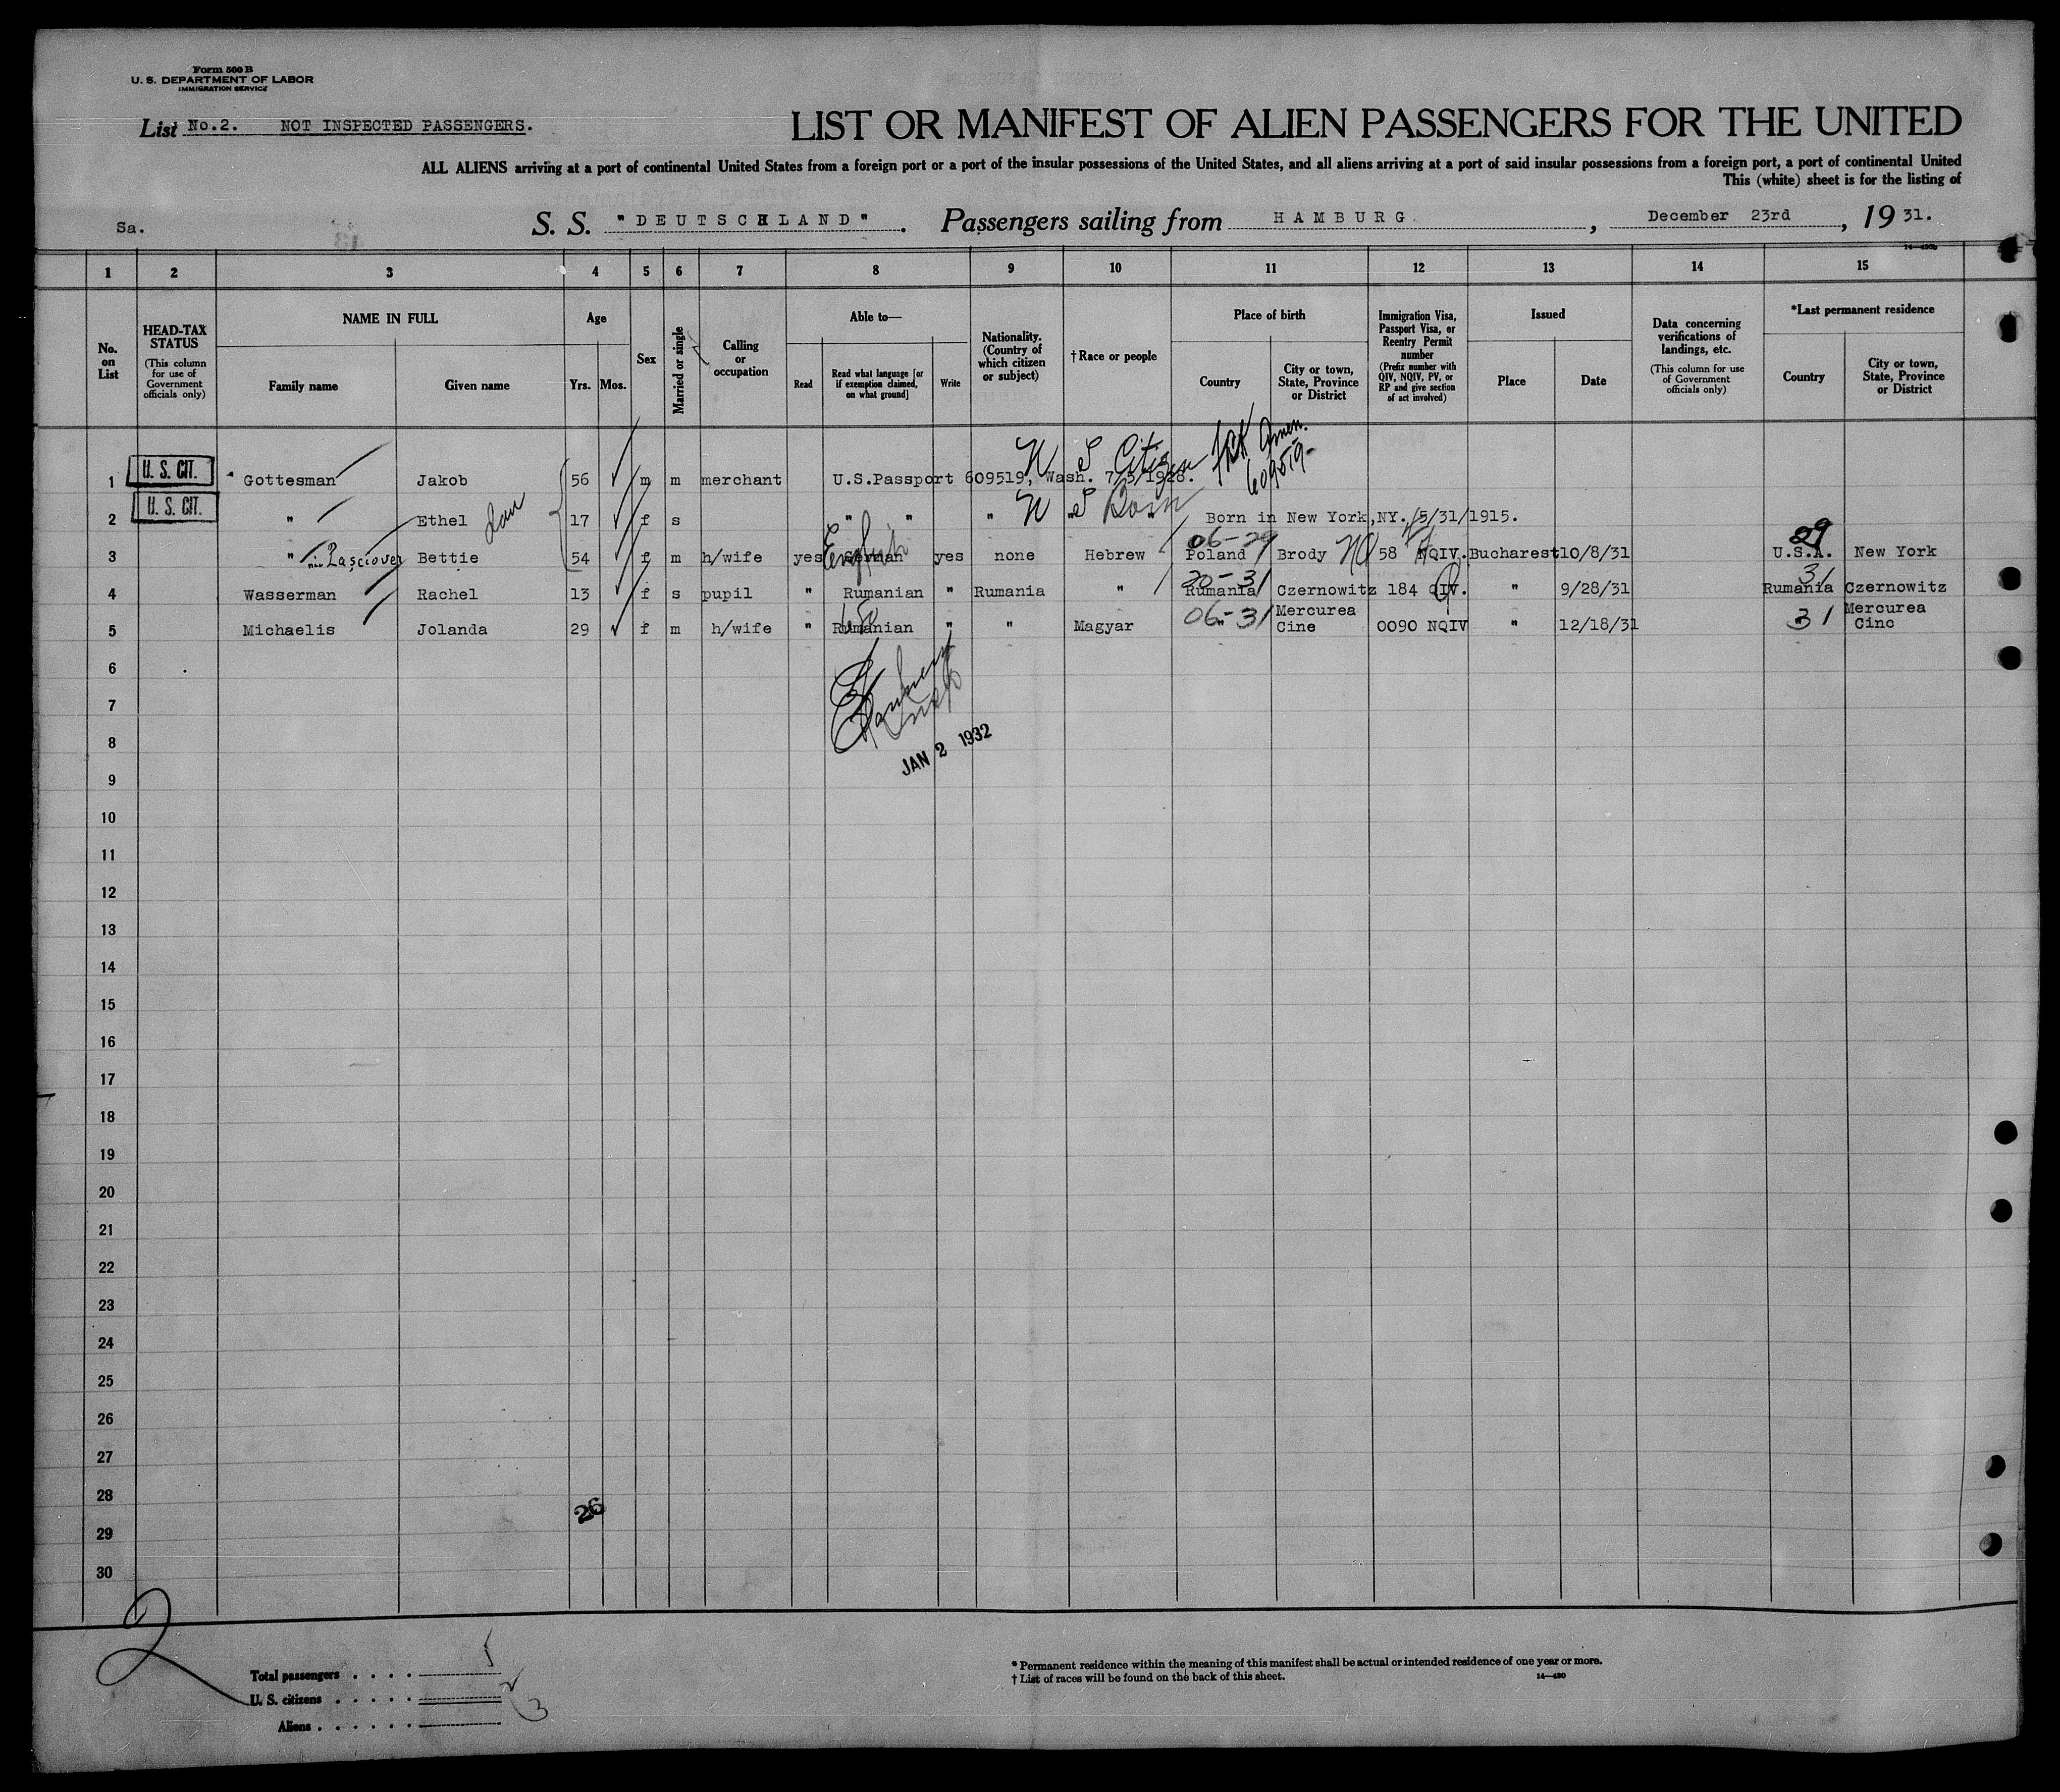 Form 500 B
U. S. DEPARTMENT OF LABOR
IMMIGRATION SERVICE
List No.2. NOT INSPECTED PASSENGERS.
LIST OR MANIFEST OF ALIEN PASSENGERS FOR THE UNITED
ALL ALIENS arriving at a port of continental United States from a foreign port or a port of the insular possessions of the United States, and all aliens arriving at a port of said insular possessions from a foreign port, a port of continental United
This (white) sheet is for the listing of
Sa. S. S. "DEUTSCHLAND". Passengers sailing from HAMBURG, December 23rd, 1931.
1 2 3 4 5 6 7 8 9 10 11 12 13 14 15
No. on List
HEAD-TAX STATUS (This column for use of Government officials only)
NAME IN FULL
Family name Given name
Age
Yrs. Mos.
Sex
Married or single
Calling or occupation
Able to—
Read Read what language [or if exemption claimed, on what ground] Write
Nationality. (Country of which citizen or subject)
†Race or people
Place of birth
Country City or town, State, Province or District
Immigration Visa, Passport Visa, or Reentry Permit number (Prefix number with QIV, NQIV, PV, or RP and give section of act involved)
Issued
Place Date
Data concerning verifications of landings, etc. (This column for use of Government officials only)
*Last permanent residence
Country City or town, State, Province or District
1 U. S. CIT. Gottesman Jakob 56 m m merchant U.S.Passport 609519, Wash. 7/5/1928. U S Citizen 609519
2 U. S. CIT. " Ethel 17 f s " " " " U S Born Born in New York,NY. 5/31/1915.
3 " Bettie 54 f m h/wife yes German English yes none Hebrew 06-29 Poland Brody 58 NQIV. Bucharest 10/8/31 29 U.S.A. New York
4 Wasserman Rachel 13 f s pupil " Rumanian " Rumania " 20-31 Rumania Czernowitz 184 QIV. " 9/28/31 31 Rumania Czernowitz
5 Michaelis Jolanda 29 f m h/wife " Rumanian " " Magyar 06-31 " Mercurea Cinc 0090 NQIV " 12/18/31 31 " Mercurea Cinc
6
7
8
JAN 2 1932
9
10
11
12
13
14
15
16
17
18
19
20
21
22
23
24
25
26
27
28
26
29
30
2
Total passengers . . . . 5
U. S. citizens . . . . . 2
Aliens . . . . . . 3
* Permanent residence within the meaning of this manifest shall be actual or intended residence of one year or more.
† List of races will be found on the back of this sheet.
14—430